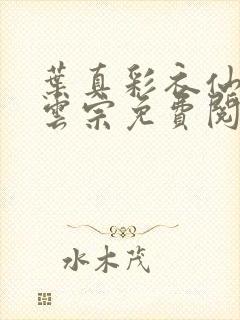 葉真彩衣仙
雲宗免費閱
水木茂